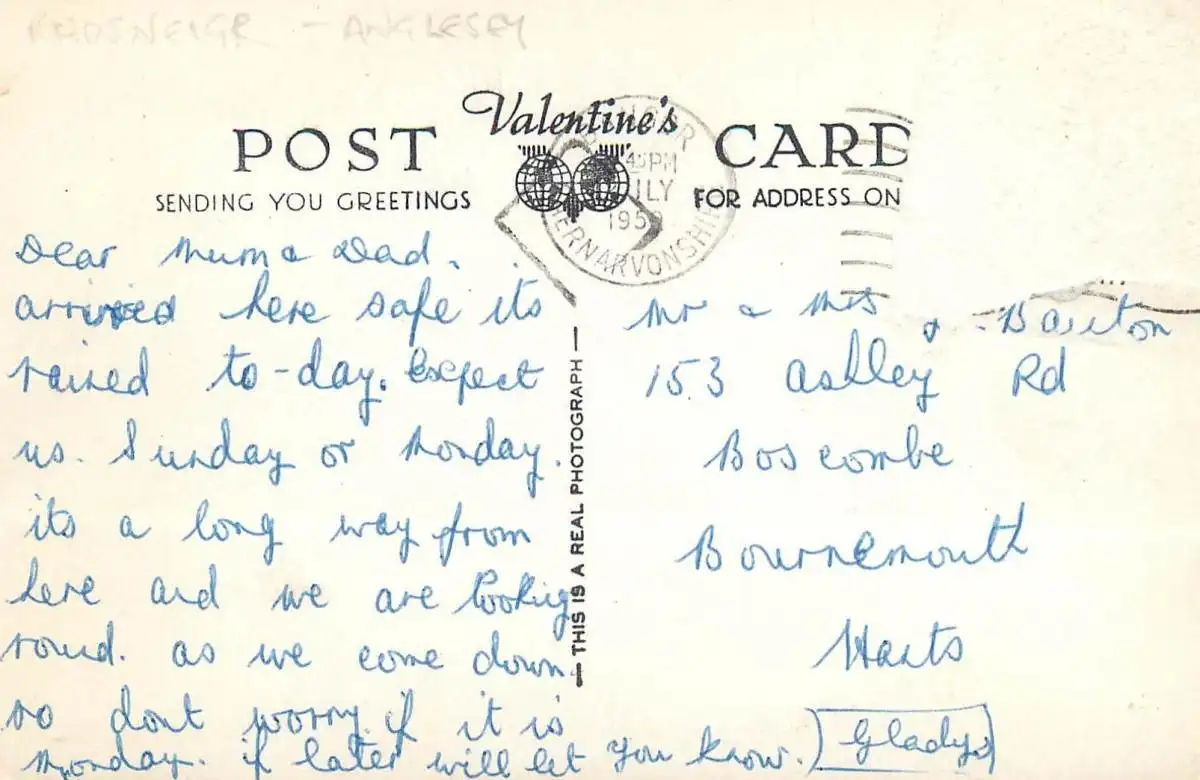 RHOSNEIGR - ANGLESEY
Valentine's
POST CARD
SENDING YOU GREETINGS
FOR ADDRESS ON
45 PM
JULY
195
CAERNARVONSHIRE
Dear Mum & Dad.
arrived here safe its
rained to-day. Expect
us. Sunday or Monday.
its a long way from
here and we are looking
round. as we come down.
so dont worry if it is
Monday. if later will let you know.
Gladys
THIS IS A REAL PHOTOGRAPH
Mr & Mrs
153 Ashley Rd
Boscombe
Bournemouth
Hants